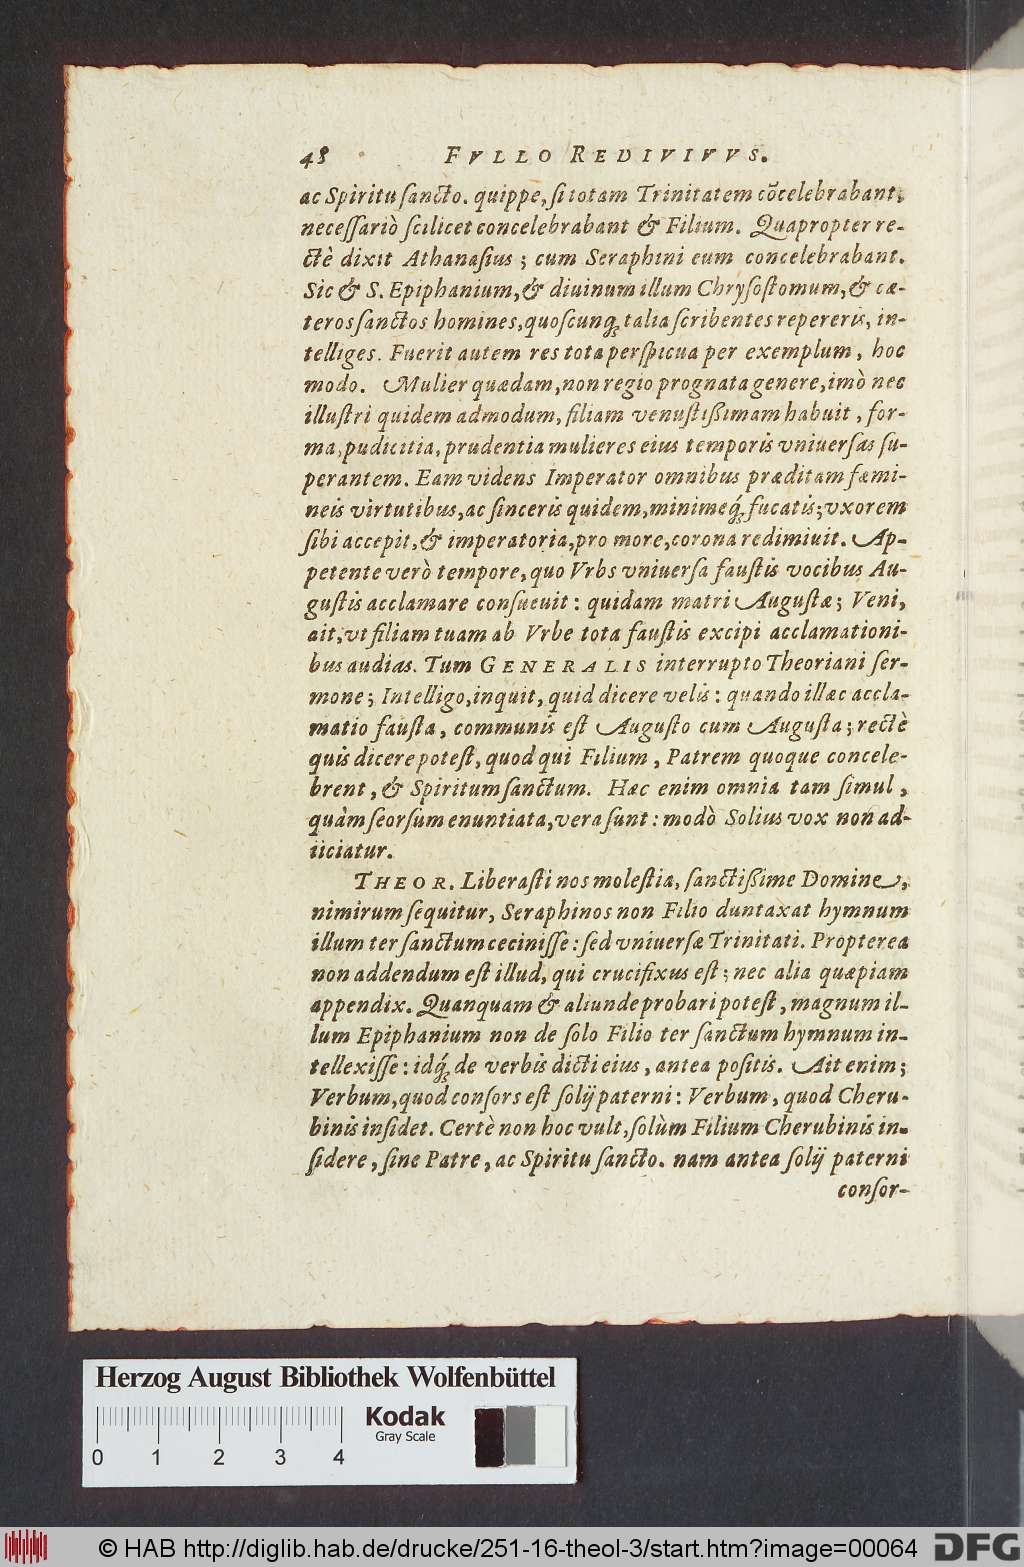 48 FVLLO REDIVIVVS.
ac Spiritu ſancto. quippe, ſi totam Trinitatem cõcelebrabant,
neceſſariò ſcilicet concelebrabant & Filium. Quapropter re-
ctè dixit Athanaſius; cum Seraphini eum concelebrabant.
Sic & S. Epiphanium, & diuinum illum Chryſoſtomum, & cæ-
teros ſanctos homines, quoſcunqꝫ talia ſcribentes repereris, in-
telliges. Fuerit autem res tota perſpicua per exemplum, hoc
modo. Mulier quædam, non regio prognata genere, imò nec
illuſtri quidem admodum, filiam venuſtißimam habuit, for-
ma, pudicitia, prudentia mulieres eius temporis vniuerſas ſu-
perantem. Eam videns Imperator omnibus præditam fæmi-
neis virtutibus, ac ſinceris quidem, minimeqꝫ́ fucatis; vxorem
ſibi accepit, & imperatoria, pro more, corona redimiuit. Ap-
petente verò tempore, quo Vrbs vniuerſa fauſtis vocibus Au-
guſtis acclamare conſueuit: quidam matri Auguſtæ; Veni,
ait, vt filiam tuam ab Vrbe tota fauſtis excipi acclamationi-
bus audias. Tum GENERALIS interrupto Theoriani ſer-
mone; Intelligo, inquit, quid dicere velis: quando illæc accla-
matio fauſta, communis eſt Auguſto cum Auguſta; rectè
quis dicere poteſt, quod qui Filium, Patrem quoque concele-
brent, & Spiritum ſanctum. Hæc enim omnia tam ſimul,
quàm ſeorſum enuntiata, vera ſunt: modò Solius vox non ad-
iiciatur.
THEOR. Liberaſti nos moleſtia, ſanctißime Domine,
nimirum ſequitur, Seraphinos non Filio duntaxat hymnum
illum ter ſanctum ceciniſſe: ſed vniuerſæ Trinitati. Propterea
non addendum eſt illud, qui crucifixus eſt; nec alia quæpiam
appendix. Quanquam & aliunde probari poteſt, magnum il-
lum Epiphanium non de ſolo Filio ter ſanctum hymnum in-
tellexiſſe: idqꝫ́ de verbis dicti eius, antea poſitis. Ait enim;
Verbum, quod conſors eſt ſolij paterni: Verbum, quod Cheru-
binis inſidet. Certè non hoc vult, ſolùm Filium Cherubinis in-
ſidere, ſine Patre, ac Spiritu ſancto. nam antea ſolij paterni
conſor-
Herzog August Bibliothek Wolfenbüttel
Kodak
Gray Scale
0 1 2 3 4
© HAB http://diglib.hab.de/drucke/251-16-theol-3/start.htm?image=00064
DFG